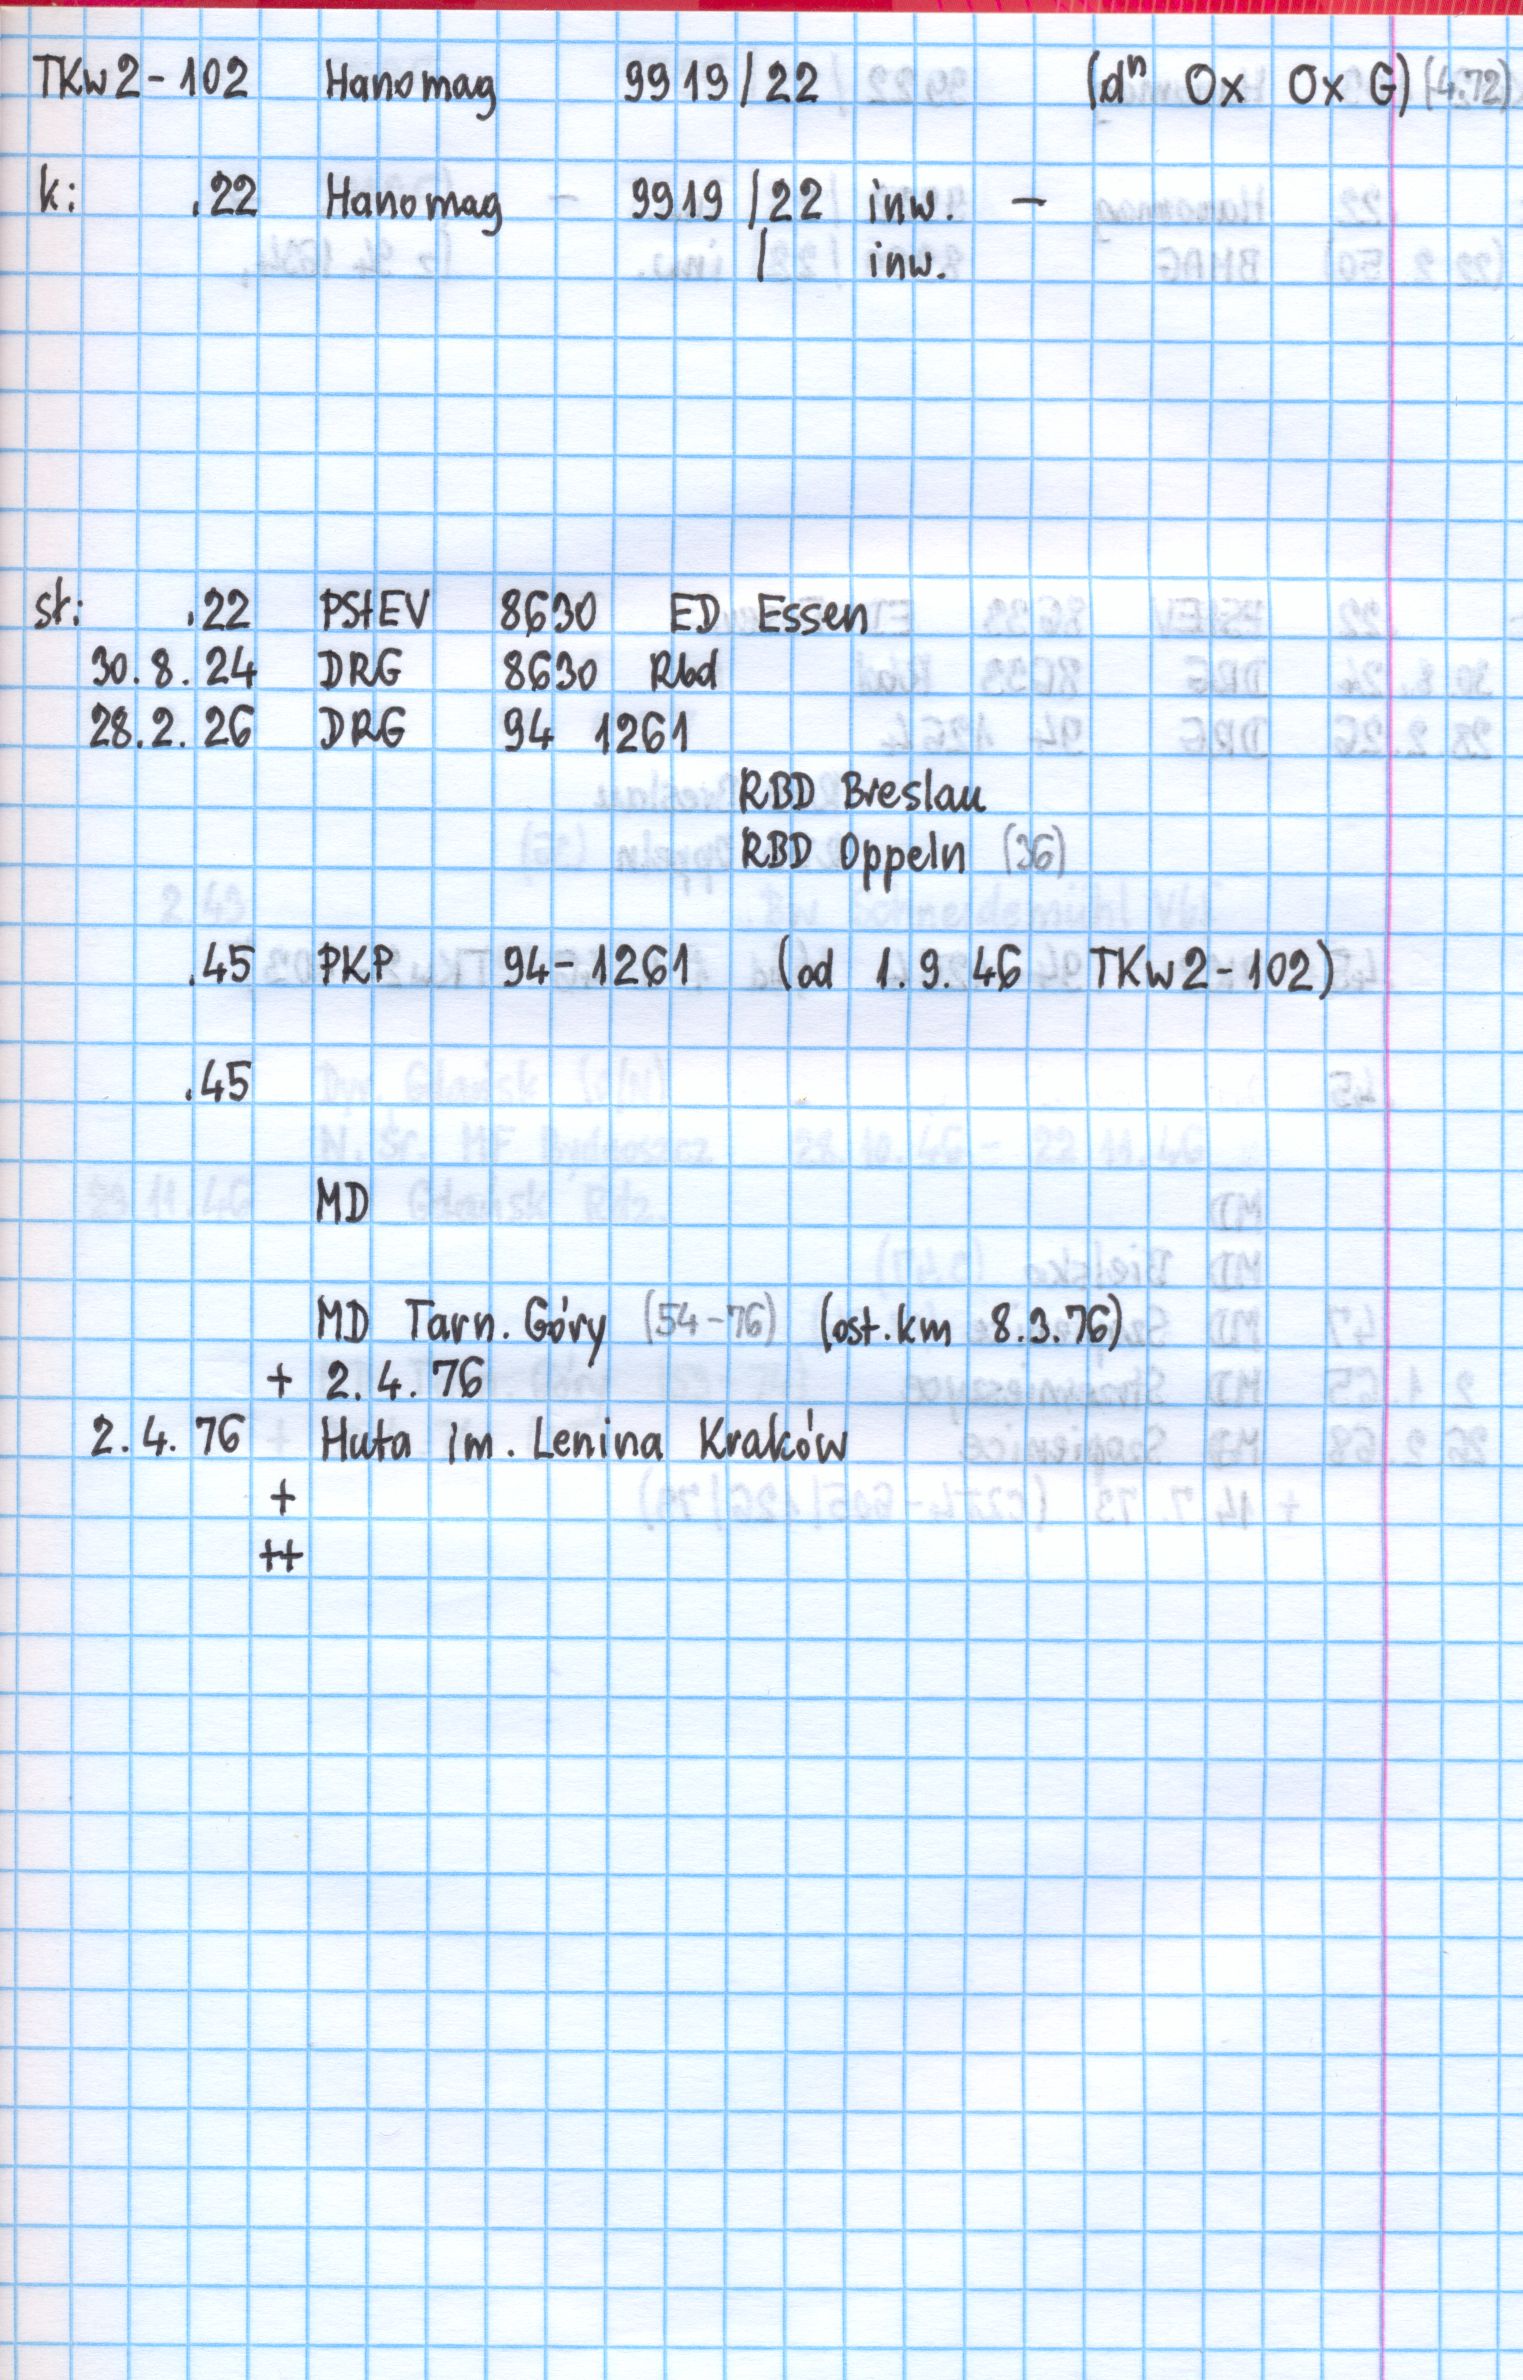 TKw2-102 Hanomag 9919/22 (dⁿ Ox Ox G) (4.72)
k: .22 Hanomag - 9919/22 inw. -
/ inw.
st: .22 PStEV 8630 ED Essen
30.8.24 DRG 8630 Rbd
28.2.26 DRG 94 1261
RBD Breslau
RBD Oppeln (36)
.45 PKP 94-1261 (od 1.9.46 TKw2-102)
.45
MD
MD Tarn. Góry (54-76) (ost.km 8.3.76)
+ 2.4.76
2.4.76 Huta im. Lenina Kraków
+
++